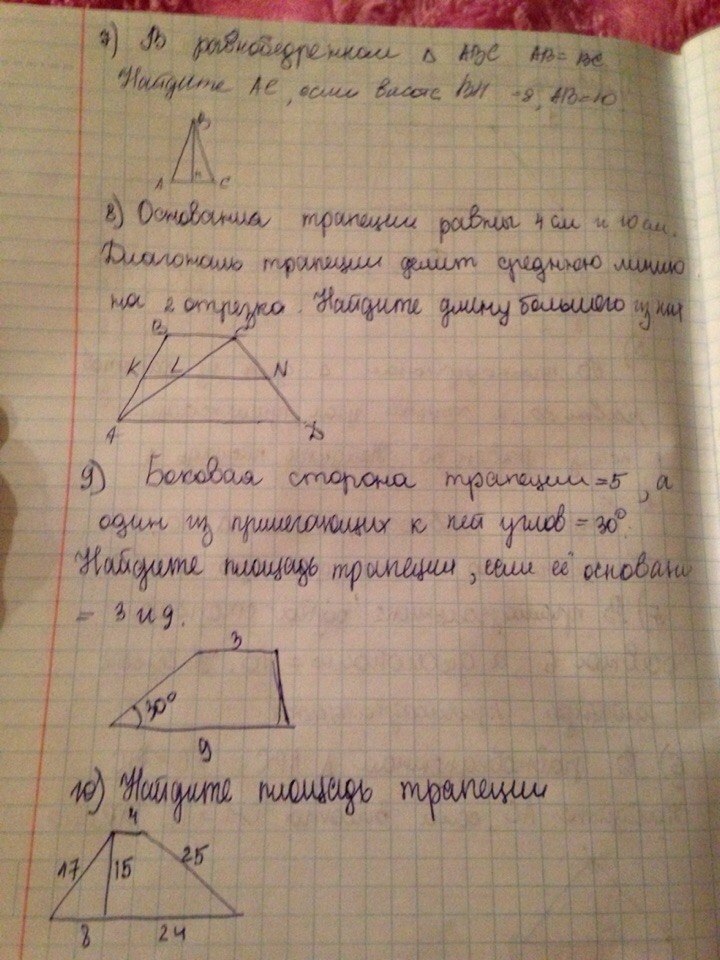 7) В равнобедренном Δ ABC AB = BC
Найдите AC, если высота BH = 8, AB = 10
B
A H C
8) Основания трапеции равны 4 см и 10 см.
Диагональ трапеции делит среднюю линию
на 2 отрезка. Найдите длину большого из них
B C
K L N
A D
9) Боковая сторона трапеции = 5, а
один из прилегающих к ней углов = 30°.
Найдите площадь трапеции, если её основани
= 3 и 9.
3
30°
9
10) Найдите площадь трапеции
4
17 15 25
8 24